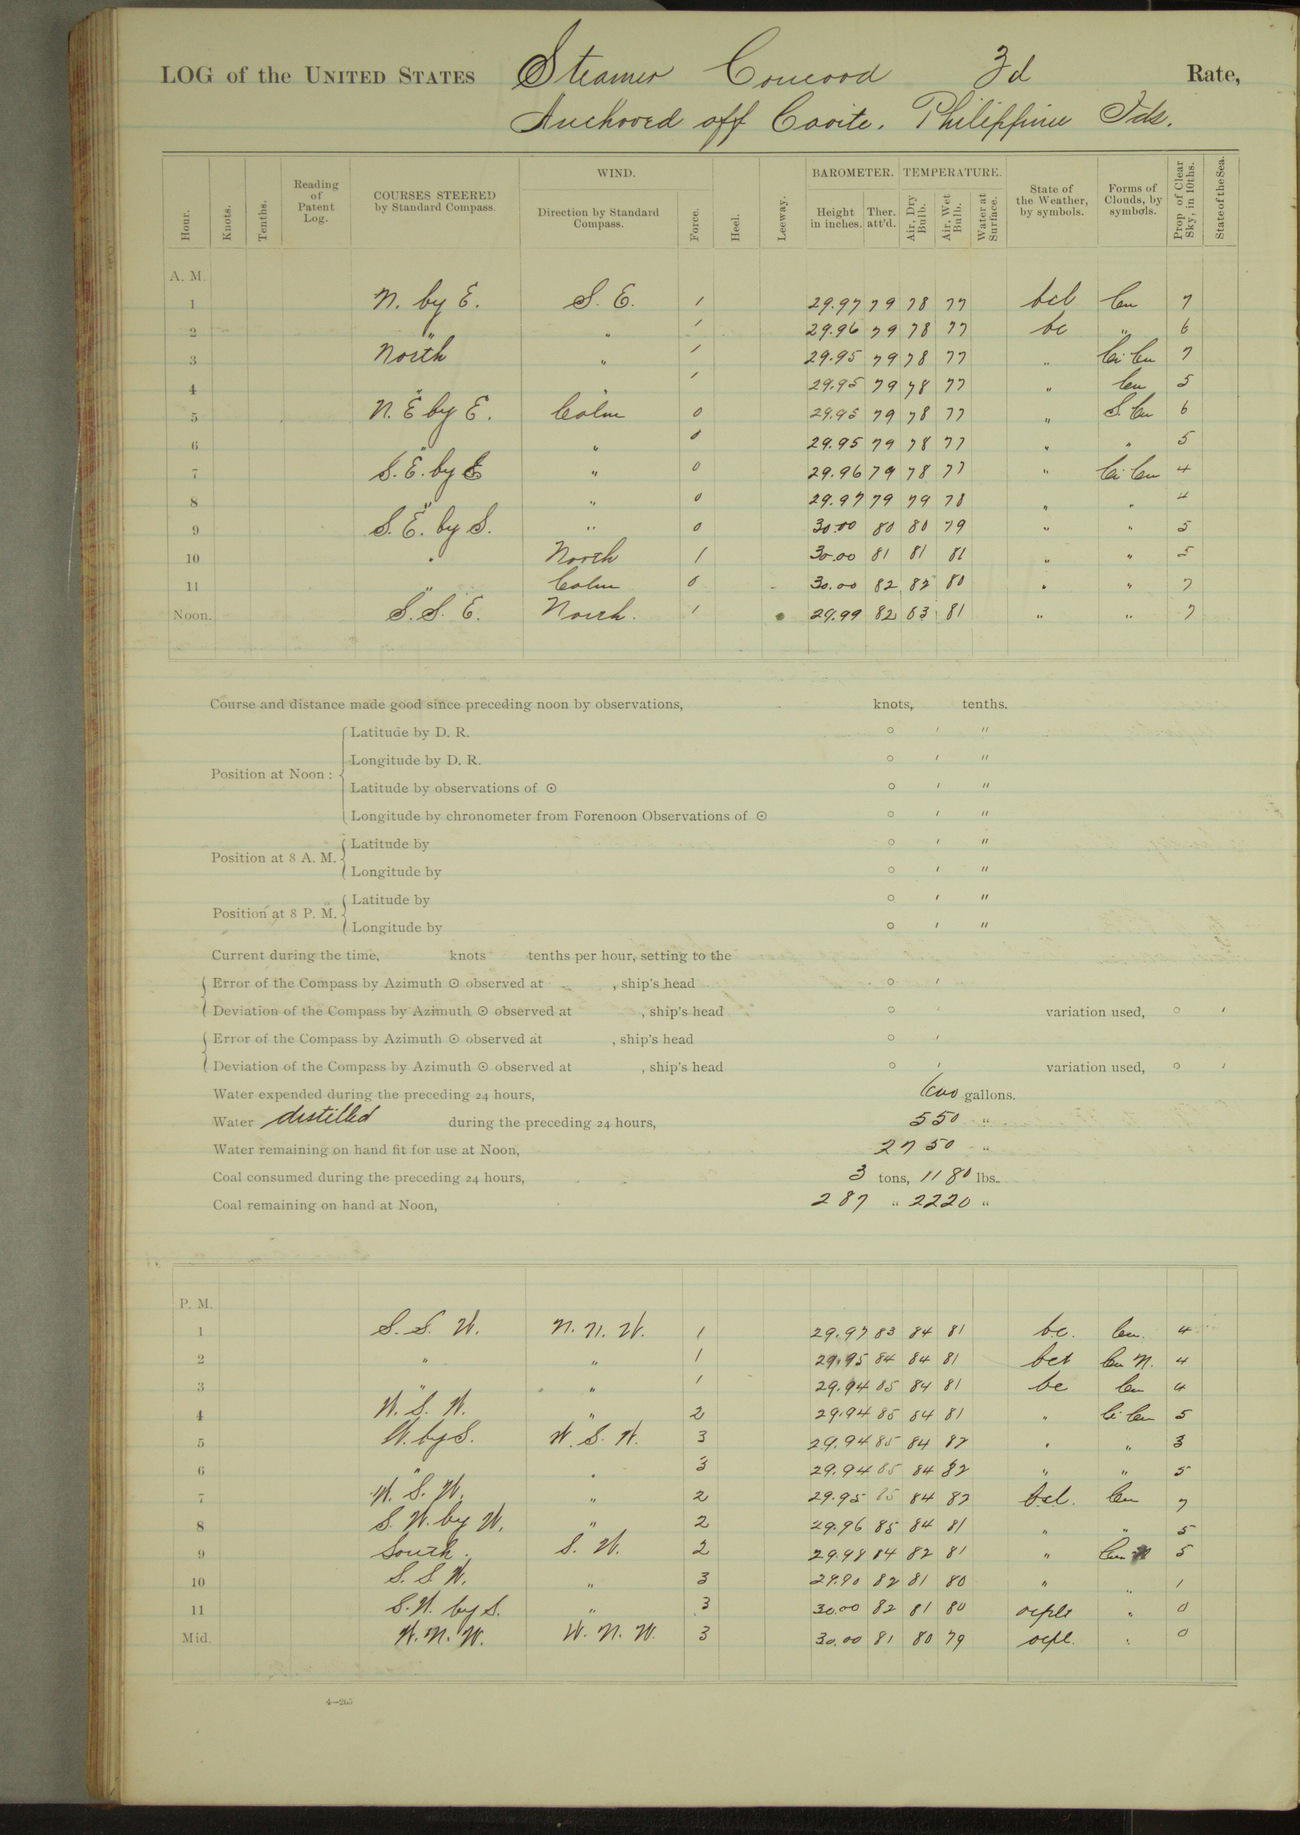 LOG of the UNITED STATES Steamer Concord 3d Rate,
Anchored off Cavite. Philippine Ids.
Hour. Knots. Tenths. Reading of Patent Log. COURSES STEERED by Standard Compass. WIND. Direction by Standard Compass. Force. Heel. Leeway. BAROMETER. Height in inches. Ther. att'd. TEMPERATURE. Air, Dry Bulb. Air, Wet Bulb. Water at Surface. State of the Weather, by symbols. Forms of Clouds, by symbols. Prop of Clear Sky, in 10ths. State of the Sea.
A. M.
1 N. by E. S. E. 1 29.97 79 78 77 bcl Cu 7
2 " " 1 29.96 79 78 77 bc " 6
3 North " 1 29.95 79 78 77 " Ci Cu 7
4 " " 1 29.95 79 78 77 " Cu 5
5 N. E by E. Calm 0 29.95 79 78 77 " S. Cu 6
6 " " 0 29.95 79 78 77 " " 5
7 S. E. by E " 0 29.96 79 78 77 " Ci Cu 4
8 " " 0 29.97 79 79 78 " " 4
9 S. E. by S. " 0 30.00 80 80 79 " " 5
10 " North 1 30.00 81 81 81 " " 5
11 " Calm 0 30.00 82 82 80 " " 7
Noon. S. S. E. North. 1 29.99 82 83 81 " " 7
Course and distance made good since preceding noon by observations, knots, tenths.
Position at Noon: Latitude by D. R. ° ' "
Longitude by D. R. ° ' "
Latitude by observations of ☉ ° ' "
Longitude by chronometer from Forenoon Observations of ☉ ° ' "
Position at 8 A. M. Latitude by ° ' "
Longitude by ° ' "
Position at 8 P. M. Latitude by ° ' "
Longitude by ° ' "
Current during the time, knots tenths per hour, setting to the
Error of the Compass by Azimuth ☉ observed at , ship's head ° '
Deviation of the Compass by Azimuth ☉ observed at , ship's head ° ' variation used, ° '
Error of the Compass by Azimuth ☉ observed at , ship's head ° '
Deviation of the Compass by Azimuth ☉ observed at , ship's head ° ' variation used, ° '
Water expended during the preceding 24 hours, 600 gallons.
Water distilled during the preceding 24 hours, 550 "
Water remaining on hand fit for use at Noon, 2750 "
Coal consumed during the preceding 24 hours, 3 tons, 1180 lbs.
Coal remaining on hand at Noon, 287 " 2220 "
P. M.
1 S. S. W. N. N. W. 1 29.97 83 84 81 bc. Cu. 4
2 " " 1 29.95 84 84 81 bct Cu N. 4
3 " " 1 29.94 85 84 81 bc Cu 4
4 W. S. W. " 2 29.94 85 84 81 " Ci Cu 5
5 W. by S. W. S. W. 3 29.94 85 84 82 " " 3
6 " " 3 29.94 85 84 82 " " 5
7 W. S. W. " 2 29.95 85 84 82 bcl. Cu 7
8 S. W. by W. " 2 29.96 85 84 81 " " 5
9 South. S. W. 2 29.98 84 82 81 " Cu N 5
10 S. S W. " 3 29.90 82 81 80 " " 1
11 S. W. by S. " 3 30.00 82 81 80 " 0
Mid. W. N. W. W. N. W. 3 30.00 81 80 79 ocpl. " 0
4—265